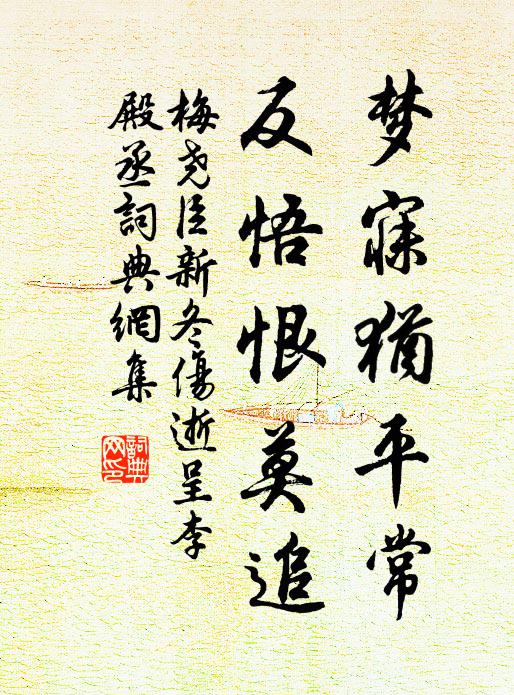 梦寐猶平常
反悟恨莫追
梅尧臣新冬傷逝呈李
殿丞詞典網集
詞典
网印